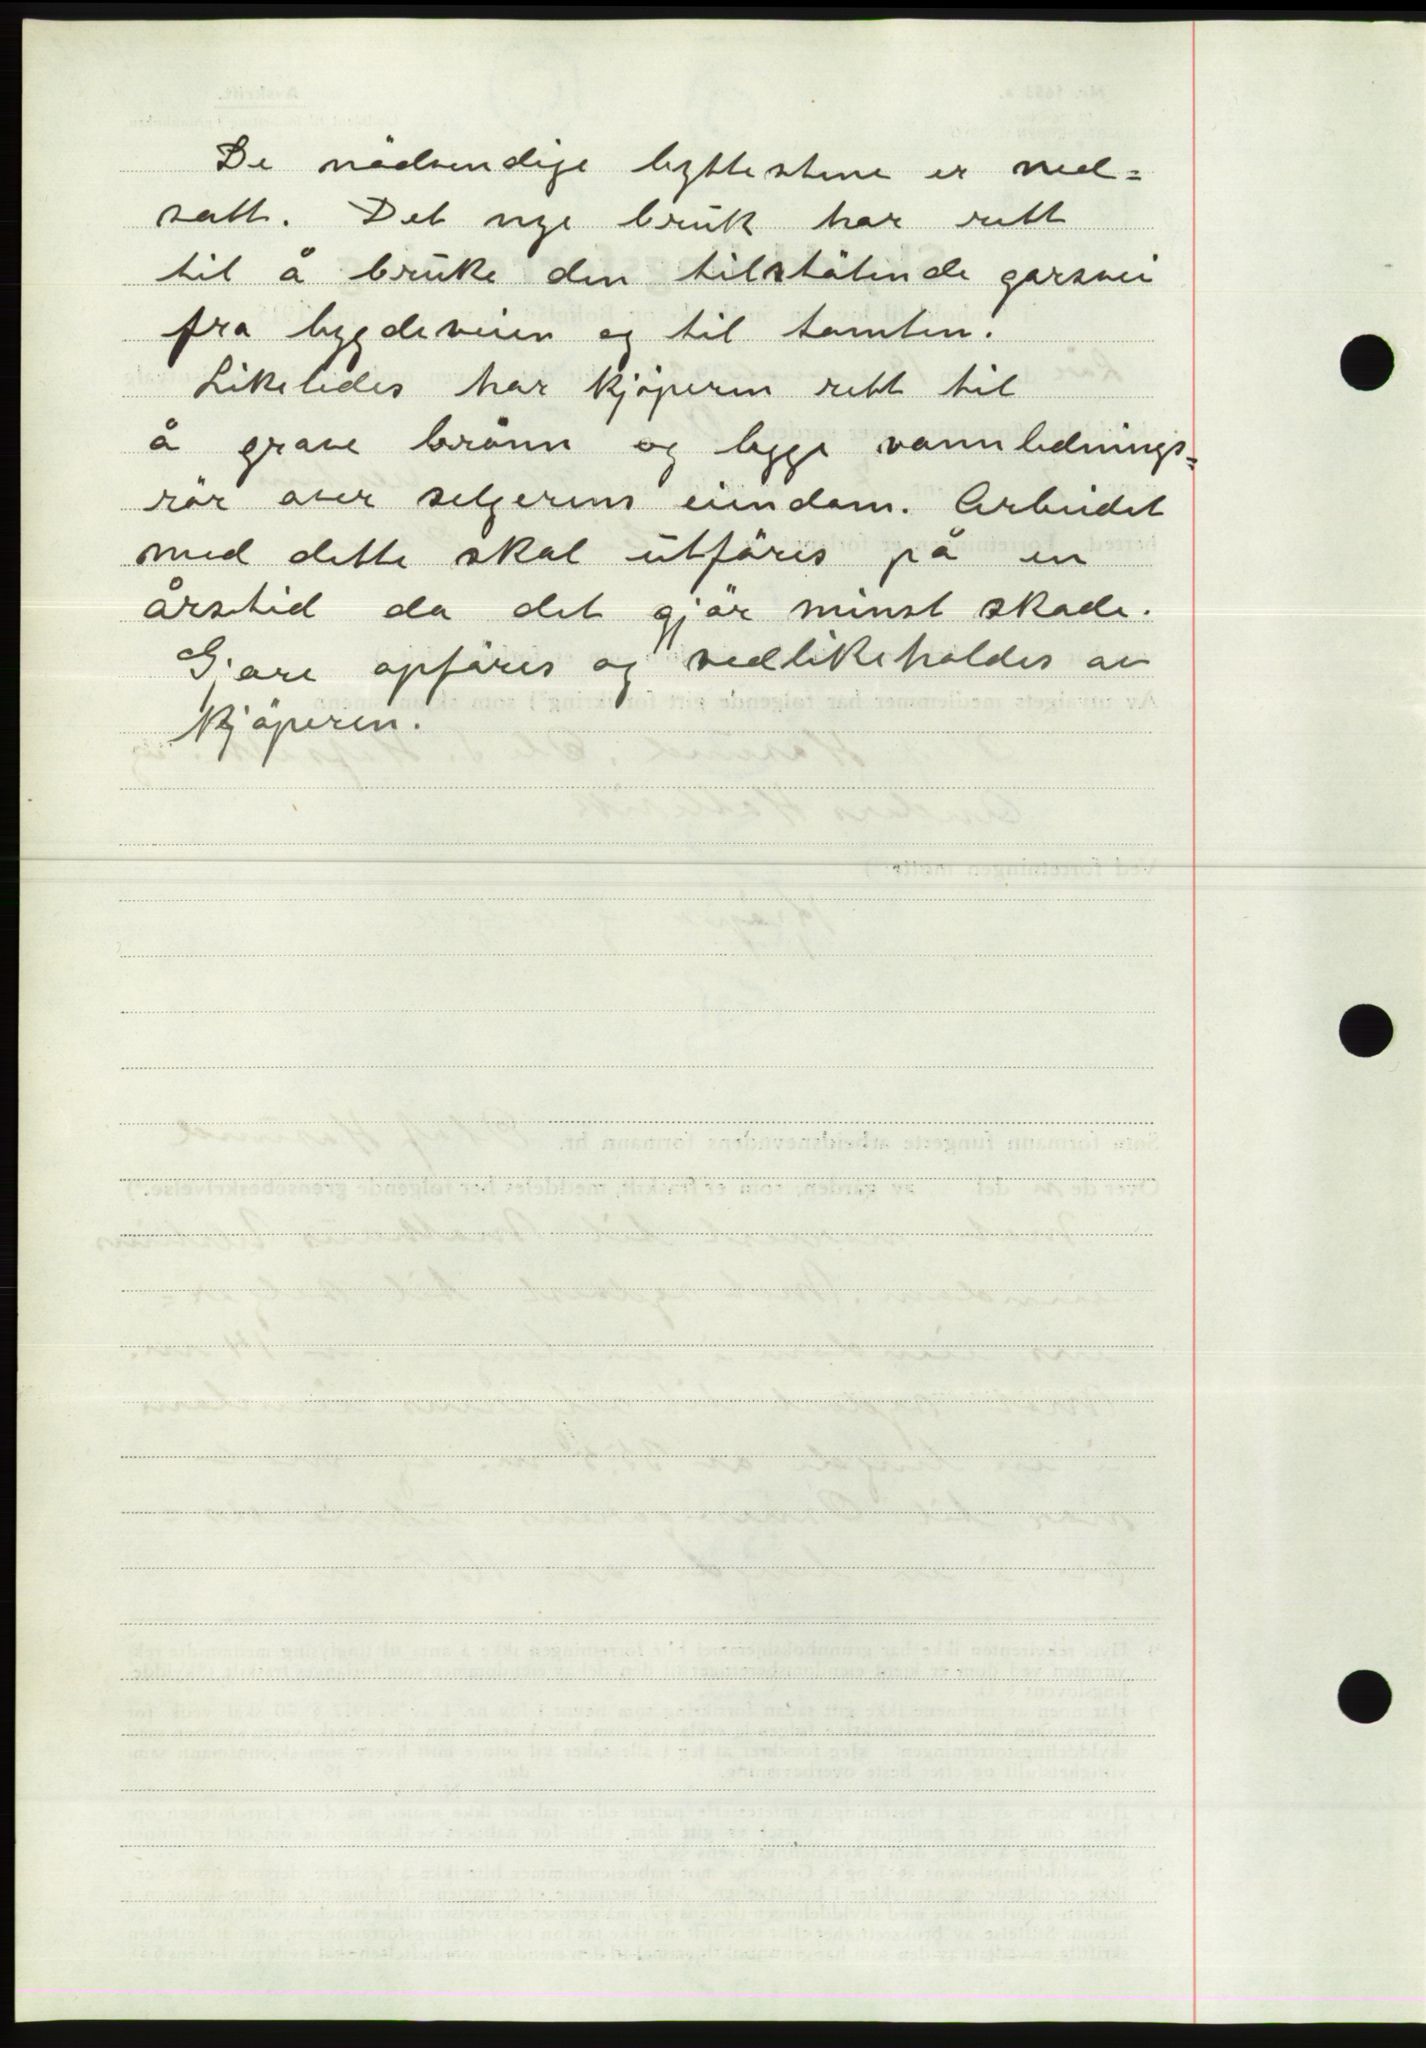 De nödvendige byttestene er ned=
satt. Det nye bruk har rett
til å bruke den tilstötende garsvei
fra bygdeveien og til tomten.
Likeledes har kjöperen rett til
å grave brönn og legge vannlednings=
rör over selgerens eiendom. Arbeidet
med dette skal utföres på en
årstid da det gjör minst skade.
Gjære opföres og vedlikeholdes av
kjöperen.